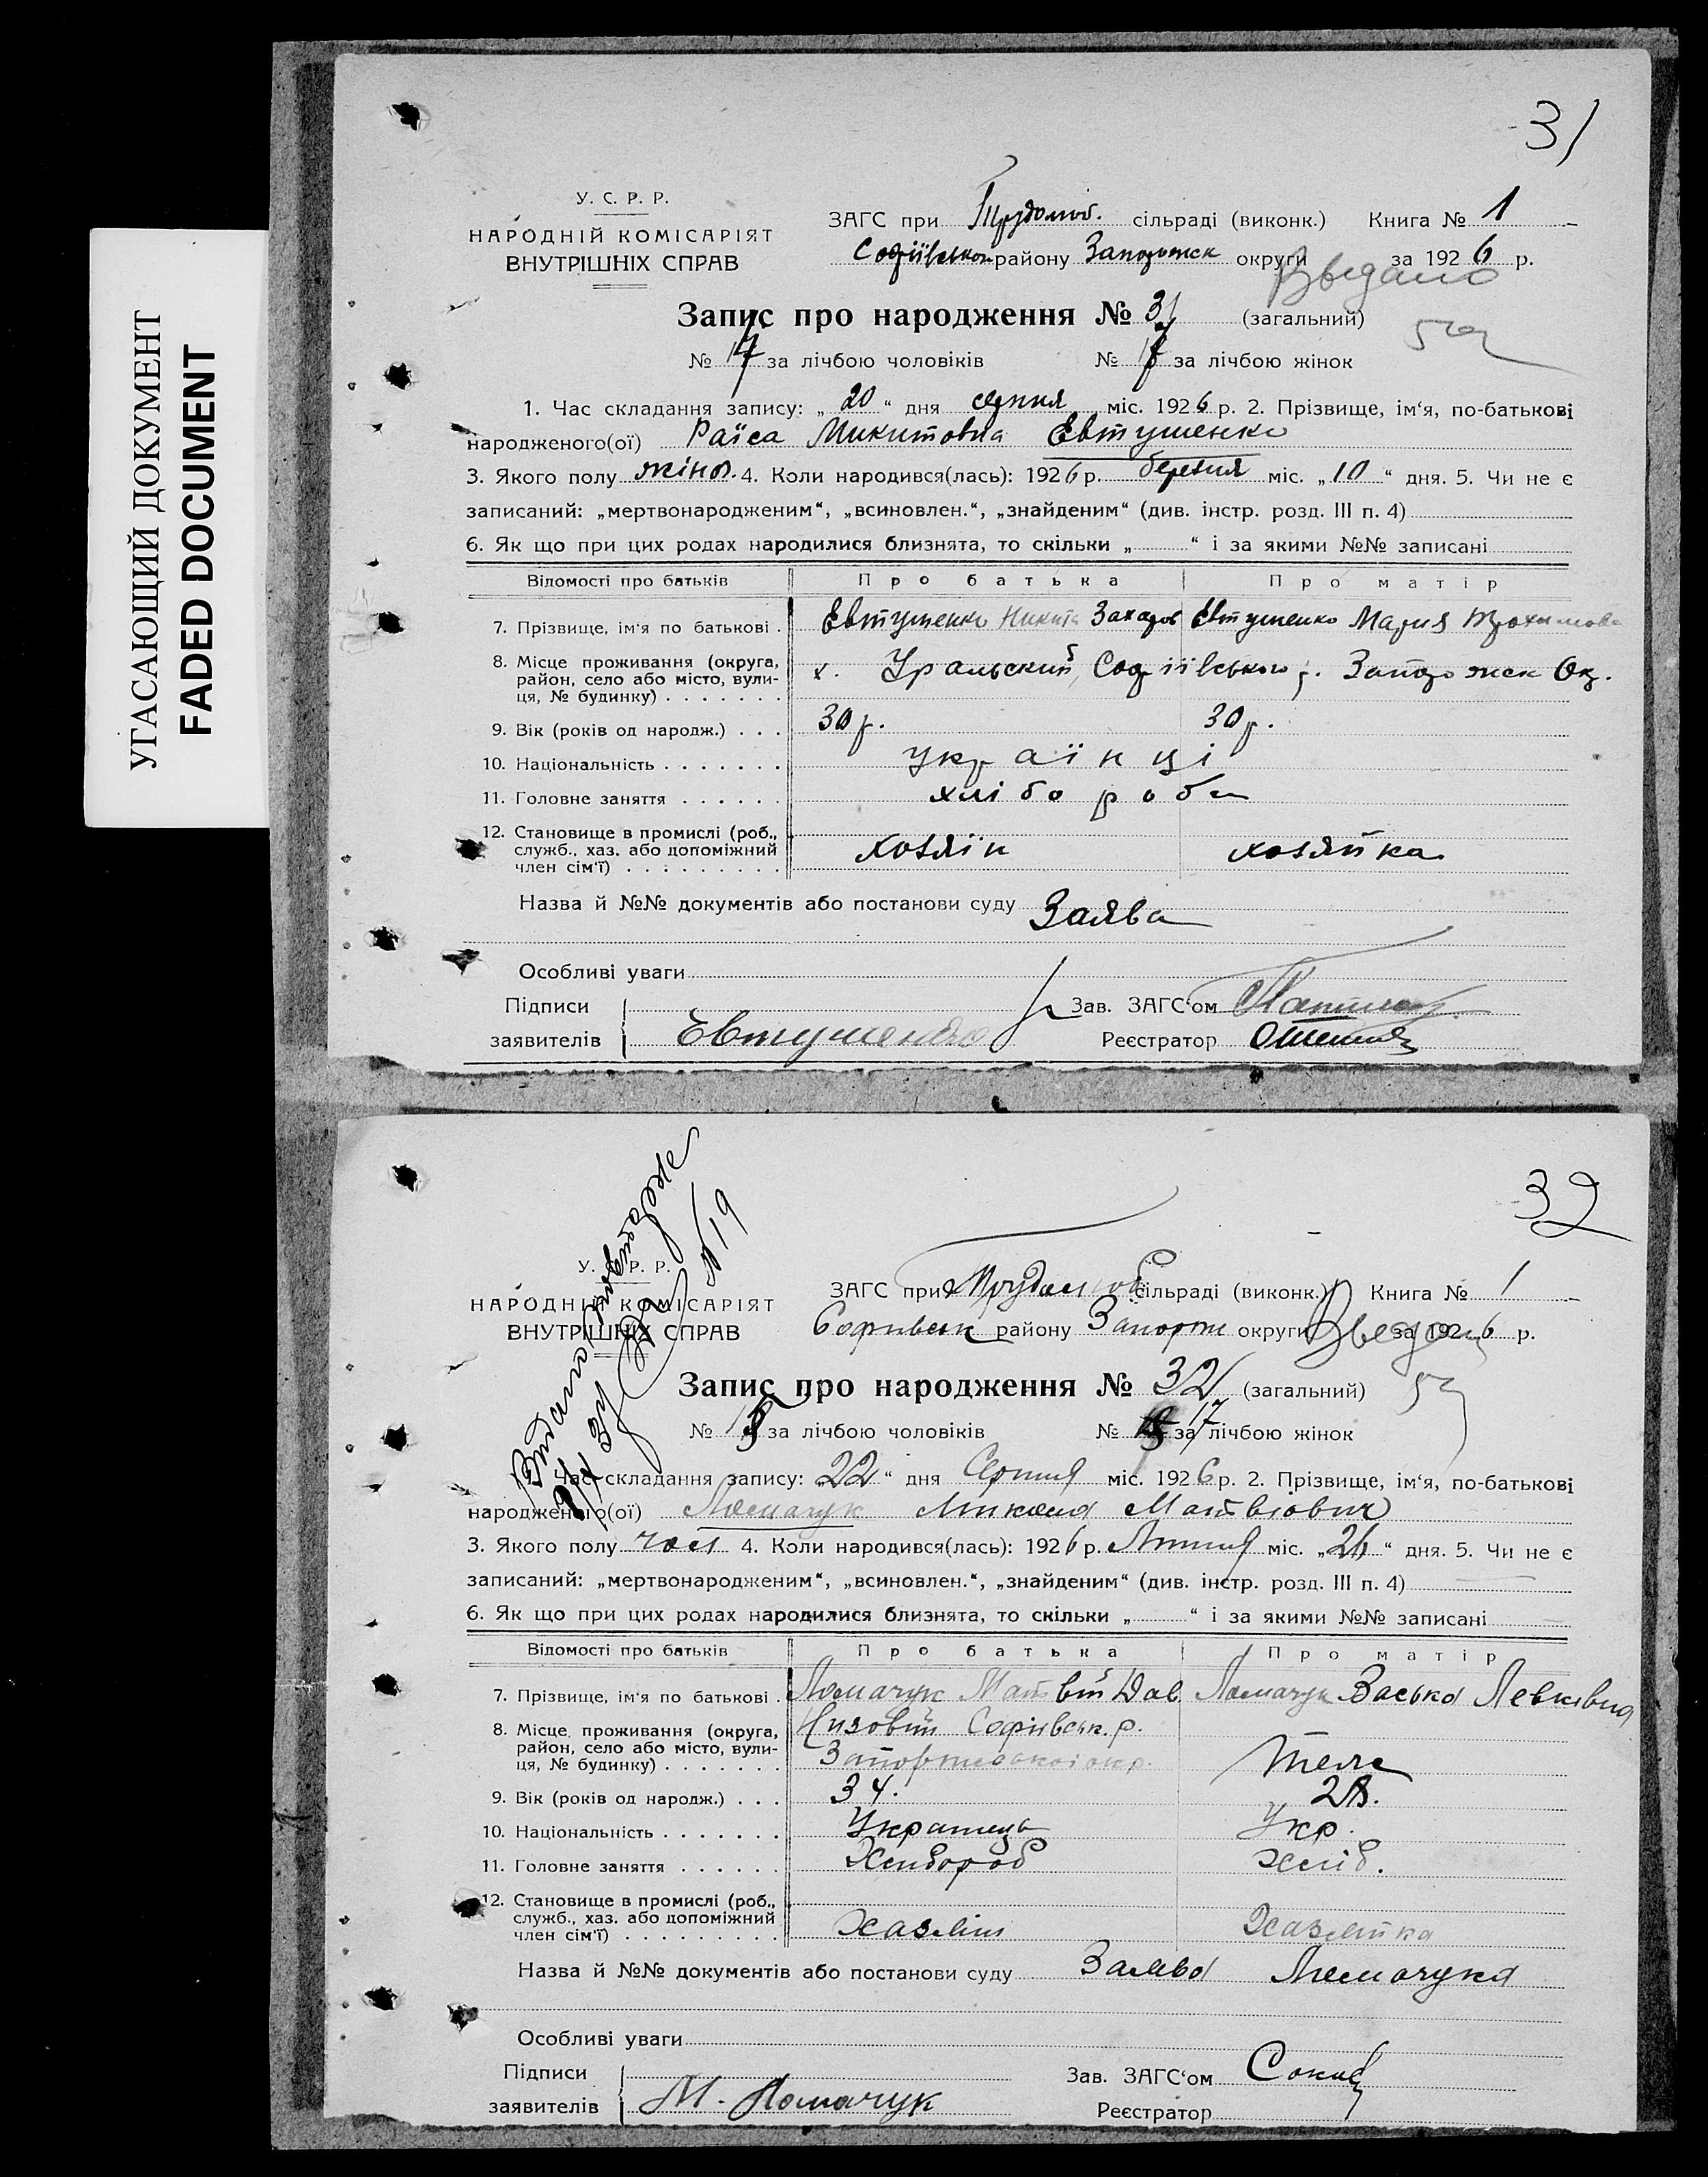 УГАСАЮЩИЙ ДОКУМЕНТ
FADED DOCUMENT
31
У. С. Р. Р.
НАРОДНІЙ КОМІСАРІЯТ
ВНУТРІШНІХ СПРАВ
ЗАГС при Трудолюб. сільраді (виконк.) Книга № 1
Софіївськ района Запоріжск округи за 1926 р.
Запис про народження № 31 (загальний)
№ 17 за лічбою чоловіків № за лічбою жінок
1. Час складання запису: „20“ дня серпня міс. 1926 р. 2. Прізвище, ім‘я, по-батькові
народженого(ої) Раїса Микитовна Евтушенко
3. Якого полу жіноч. 4. Коли народився(лась): 1926 р. березня міс. „10“ дня. 5. Чи не є
записаний: „мертвонародженим“, „всиновлен.“, „знайденим“ (див. інстр. розд. III п. 4)
6. Як що при цих родах народилися близнята, то скільки „ “ і за якими №№ записані
Відомості про батьків Про батька Про матір
7. Прізвище, ім‘я по батькові . Евтушенко Никита Захаров Евтушенко Мария Трохимова
8. Місце проживання (округа,
район, село або місто, вули-
ця, № будинку) . . . . . . . х. Уральский, Софіівського р. Запорожск Ок.
9. Вік (років од народж.) . . . 30 р. 30 р.
10. Національність . . . . . . . українці
11. Головне заняття . . . . . . хлібороби
12. Становище в промислі (роб.,
служб., хаз. або допоміжний
член сім‘ї) . . . . . . . . . хозяїн хозяйка
Назва й №№ документів або постанови суду Заява
Особливі уваги
Підписи Зав. ЗАГС‘ом
заявителів Евтушенко Реєстратор
32
У. С. Р. Р.
НАРОДНІЙ КОМІСАРІЯТ
ВНУТРІШНІХ СПРАВ
№ 19
ЗАГС при Трудолюб сільраді (виконк.) Книга № 1
Софиевск району Запорож округи за 1926 р.
Запис про народження № 32 (загальний)
№ 15 за лічбою чоловіків № 17 за лічбою жінок
Час складання запису: „22“ дня Серпня міс. 1926 р. 2. Прізвище, ім‘я, по-батькові
народженого(ої) Ломачук Микола Матвіович
3. Якого полу чол 4. Коли народився(лась): 1926 р. Липня міс. „26“ дня. 5. Чи не є
записаний: „мертвонародженим“, „всиновлен.“, „знайденим“ (див. інстр. розд. III п. 4)
6. Як що при цих родах народилися близнята, то скільки „ “ і за якими №№ записані
Відомості про батьків Про батька Про матір
7. Прізвище, ім‘я по батькові . Ломачук Матвій Дав Ломачук Васька Левківна
8. Місце проживання (округа,
район, село або місто, вули-
ця, № будинку) . . . . . . . Низовій Софиівськ. р.
Запоріжськоі окр. Теж
9. Вік (років од народж.) . . . 34. 28.
10. Національність . . . . . . . Українець Укр.
11. Головне заняття . . . . . . Хлибороб Хліб.
12. Становище в промислі (роб.,
служб., хаз. або допоміжний
член сім‘ї) . . . . . . . . . Хазяін Хазяйка
Назва й №№ документів або постанови суду Заява Ломачука
Особливі уваги
Підписи Зав. ЗАГС‘ом
заявителів М. Ломачук Реєстратор